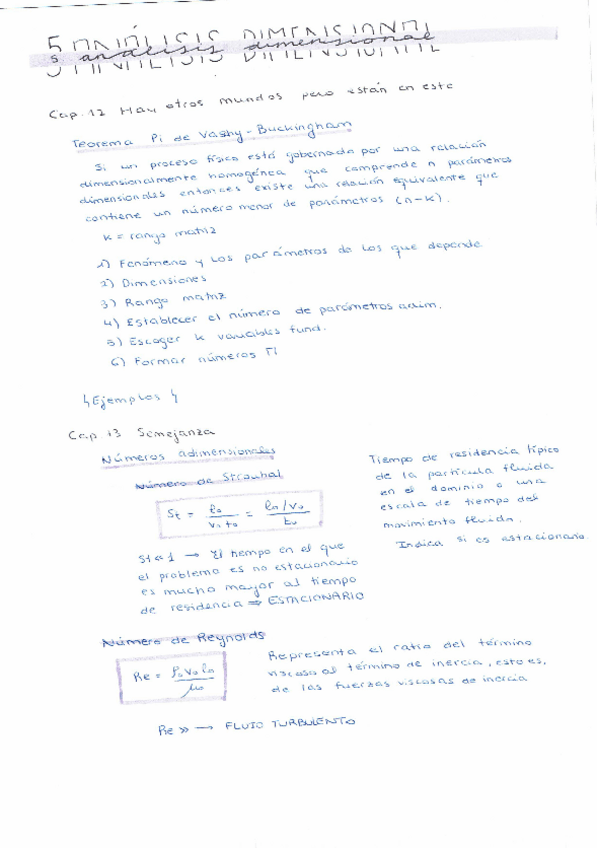 5 ANÁLISIS DIMENSIONAL
5 análisis dimensional
Cap. 12 Hay otros mundos pero están en este
Teorema Pi de Vashy-Buckingham
Si un proceso físico está gobernado por una relación
dimensionalmente homogénea que comprende n parámetros
dimensionales entonces existe una relación equivalente que
contiene un número menor de parámetros (n-k).
k = rango matriz
1) Fenómeno y los parámetros de los que depende
2) Dimensiones
3) Rango matriz
4) Establecer el número de parámetros adim.
5) Escoger k variables fund.
6) Formar números Π
Ejemplos
Cap 13 Semejanza
Números adimensionales
Número de Strouhal
St = l₀ / v₀ t₀ = l₀/v₀ / t₀
St << 1 → El tiempo en el que
el problema es no estacionario
es mucho mayor al tiempo
de residencia ⇒ ESTACIONARIO
Tiempo de residencia típico
de la partícula fluida
en el dominio o una
escala de tiempo del
movimiento fluido.
Indica si es estacionario
Número de Reynolds
Re = ρ₀ v₀ l₀ / μ₀
Representa el ratio del término
viscoso al término de inercia, esto es,
de las fuerzas viscosas de inercia
Re >> → FLUJO TURBULENTO